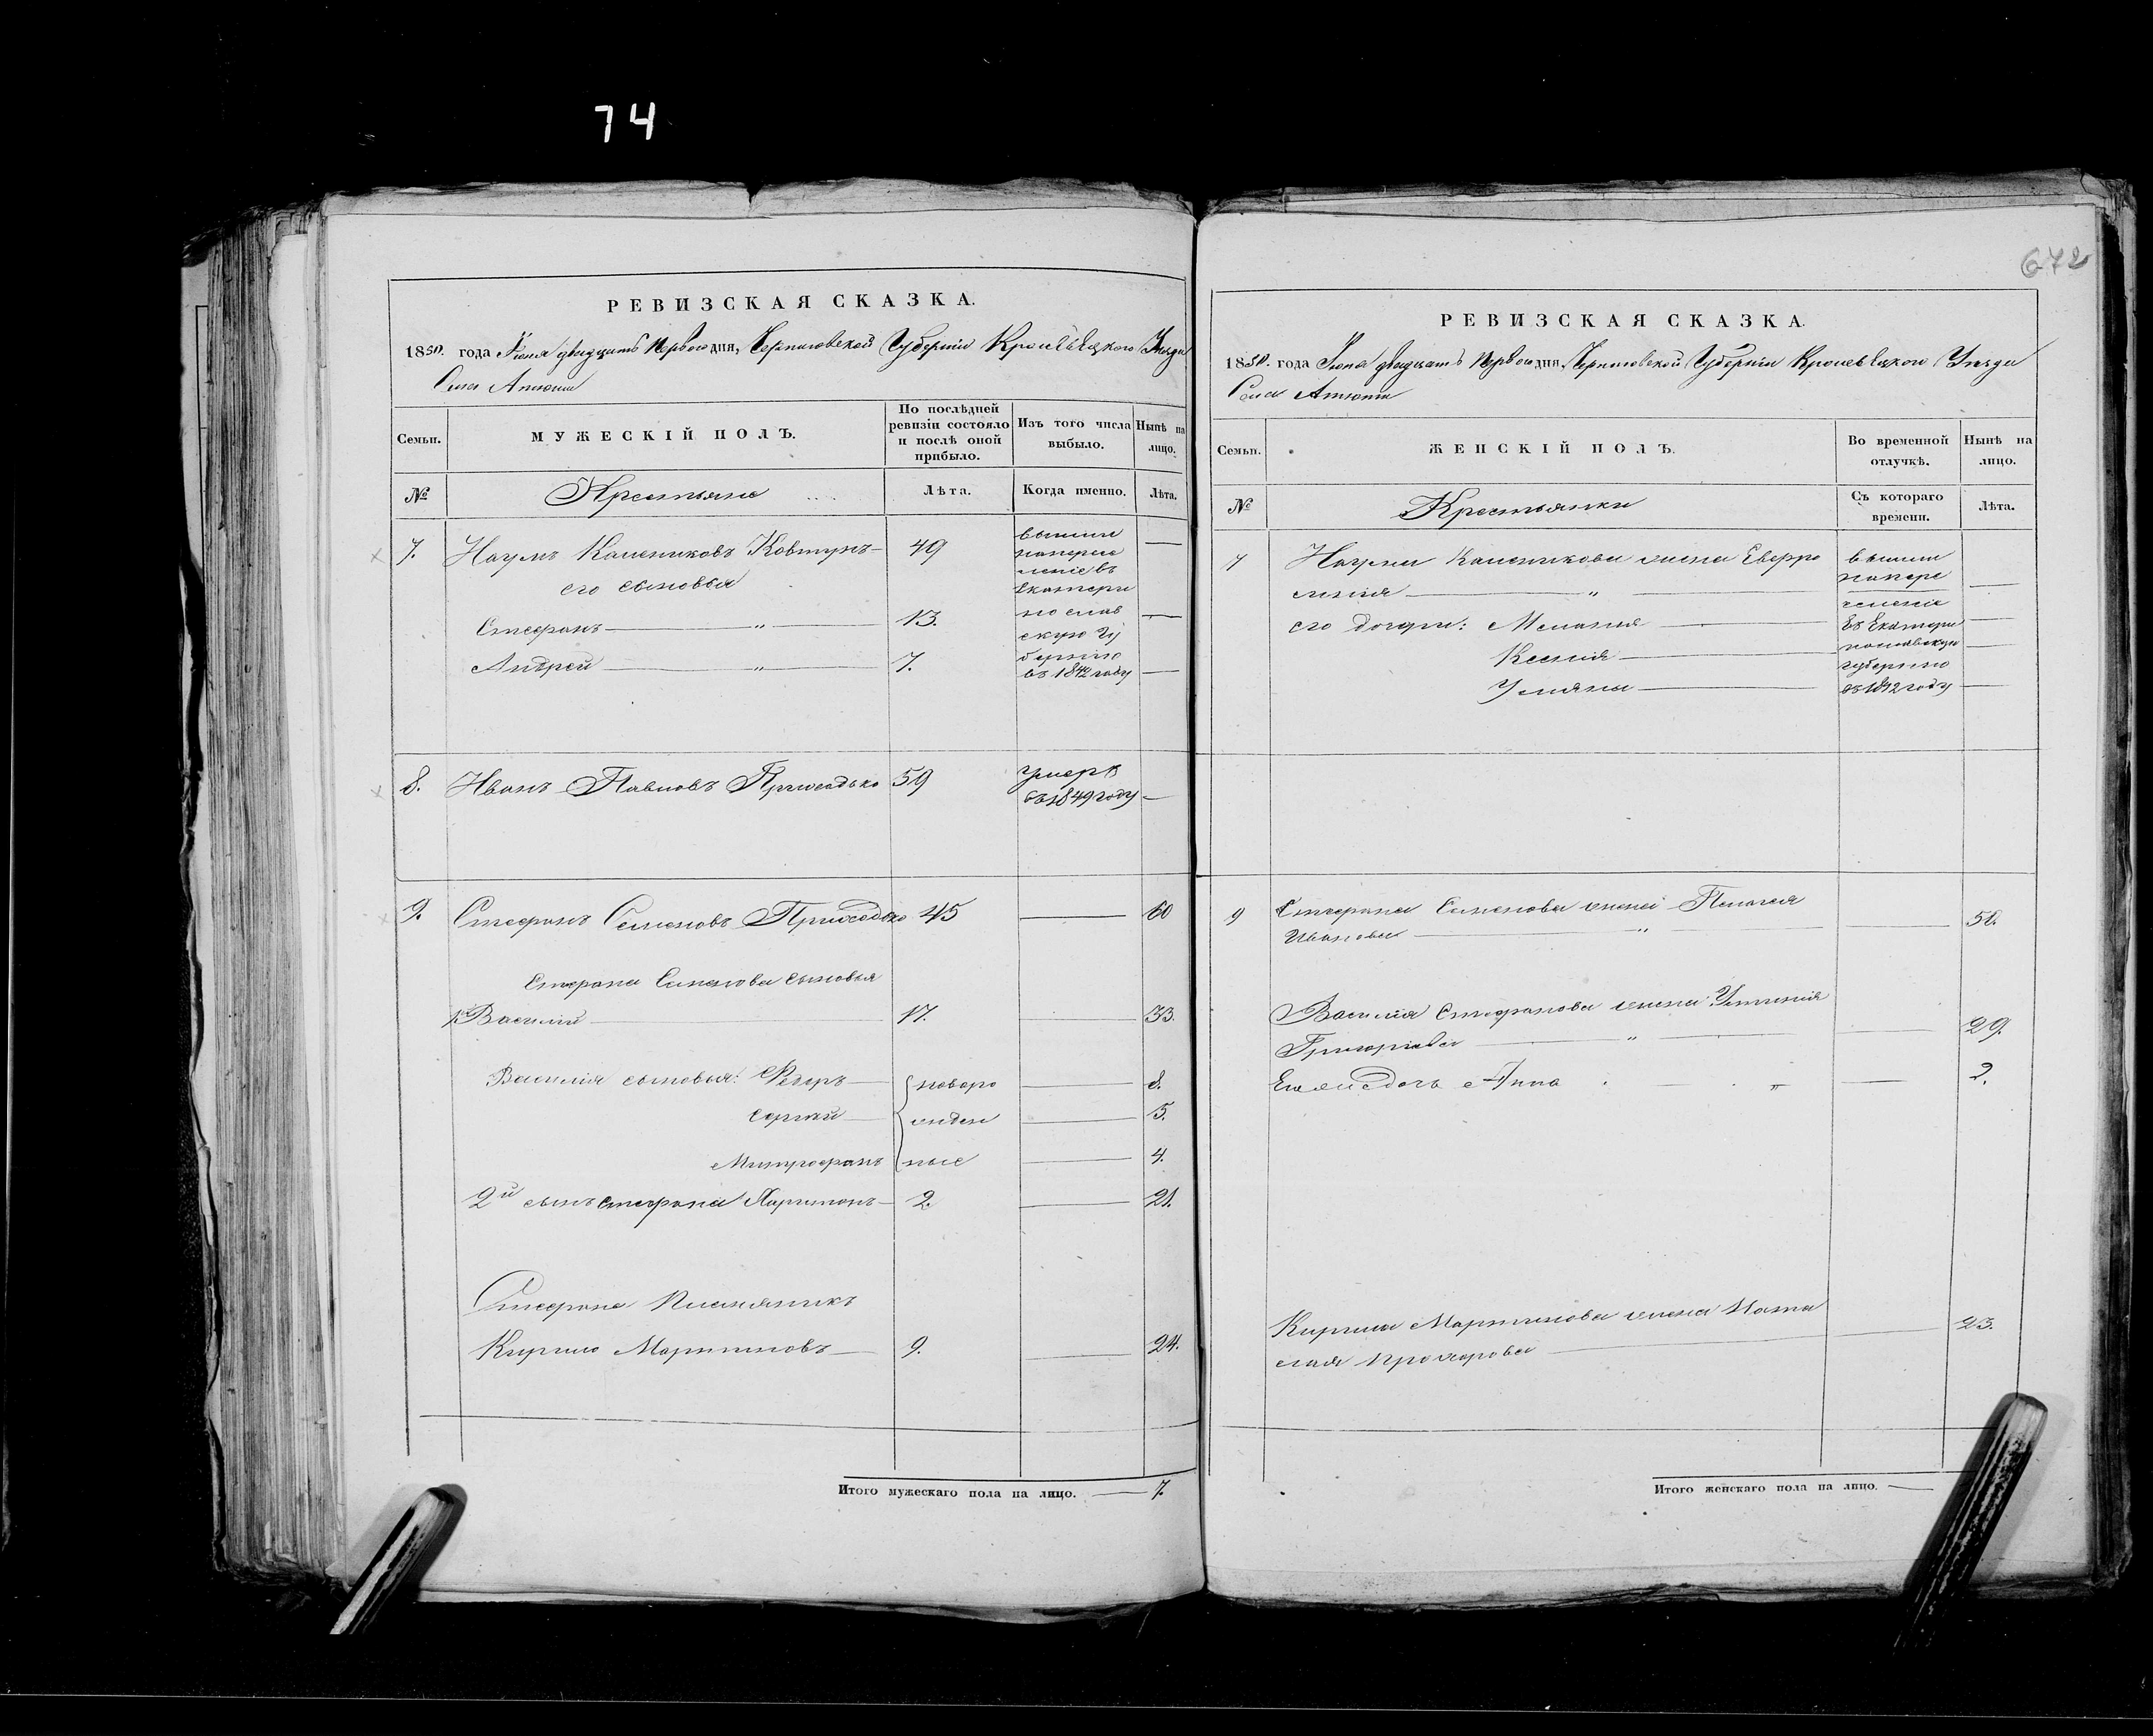 74
672
РЕВИЗСКАЯ СКАЗКА.
1850. года Июня двадцать перваго дня, Черниговской Губернии Кролевецкого Уезда
Села Атюши
Семьи.
МУЖЕСКІЙ ПОЛЪ.
По послѣдней ревизіи состояло и послѣ оной прибыло.
Изъ того числа выбыло.
Нынѣ на лицо.
№
Крестьяне
Лѣта.
Когда именно.
Лѣта.
7. Наумъ Калениковъ Ковтунъ 49
его сыновья
Стефанъ " 13.
Андрей " 7.
вышли
на пересе
леніе въ
Екатери
но слав
скую Гу
бернію
въ 1842 году
8. Иванъ Павловъ Приходько 59
умеръ
въ 1849 году
9. Стефанъ Семеновъ Приходько 45 60
Стефана Семенова сыновья
1й Василій 17. 33.
Василія сыновья: Федоръ новоро 8.
Сергій жден 5.
Митрофанъ ные 4.
2й сынъ Стефана Харитонъ 2. 21.
Стефана племяникъ
Кирило Мартиновъ 9. 24.
Итого мужескаго пола на лицо. 7.
РЕВИЗСКАЯ СКАЗКА.
1850. года Июня двадцать перваго дня, Черниговской Губерніи Кролевецкого Уезда
Села Атюши
Семьи.
ЖЕНСКІЙ ПОЛЪ.
Во временной отлучкѣ.
Нынѣ на лицо.
№
Крестьянки
Съ котораго времени.
Лѣта.
7 Наума Каленикова жена Евфро
синия "
его дочери: Мелания
Ксенія
Улияна
вышли
на пере
селеніе
въ Екатери
нославскую
губернію
въ 1842 году
9 Стефана Семенова жена Пелагея
Иванова " 50.
Василія Стефанова жена Устинія
Григоріева " 29.
Ея дочь Анна " 2.
Кирила Мартинова жена Ната
лія Прохорова 23.
Итого женскаго пола на лицо.